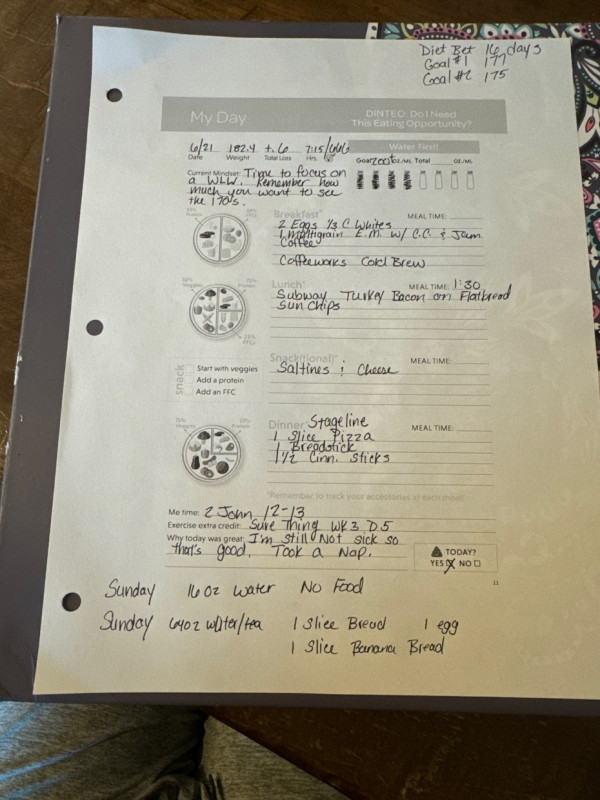 Diet Bet 16 days
Goal #1 177
Goal #2 175
My Day
DINTEO: Do I Need
This Eating Opportunity?
6/21 182.4 +.6 7:15/6616
Date Weight Total Loss Hrs.
Water First!
Goal 200+ oz./ML Total oz./ML
Current Mindset: Time to focus on
a WLW. Remember how
much you want to see
the 170's.
Breakfast MEAL TIME:
2 Eggs 1/3 C Whites
1 Multigrain E.M. w/ C.C. & Jam
Coffee
Coffeeworks Cold Brew
Lunch MEAL TIME: 1:30
Subway Turkey Bacon on Flatbread
Sun Chips
Snack(tional) MEAL TIME:
Saltines & Cheese
snack
Start with veggies
Add a protein
Add an FFC
Dinner Stageline MEAL TIME:
1 Slice Pizza
1 Breadstick
1 1/2 Cinn. Sticks
*Remember to track your accessories at each meal!
Me time: 2 John 12-13
Exercise extra credit: Sure Thing WK3 D5
Why today was great: I'm Still Not sick so
that's good. Took a Nap.
TODAY?
YES NO
11
Sunday 16 oz Water No Food
Sunday 64oz water/tea 1 Slice Bread 1 egg
1 Slice Banana Bread